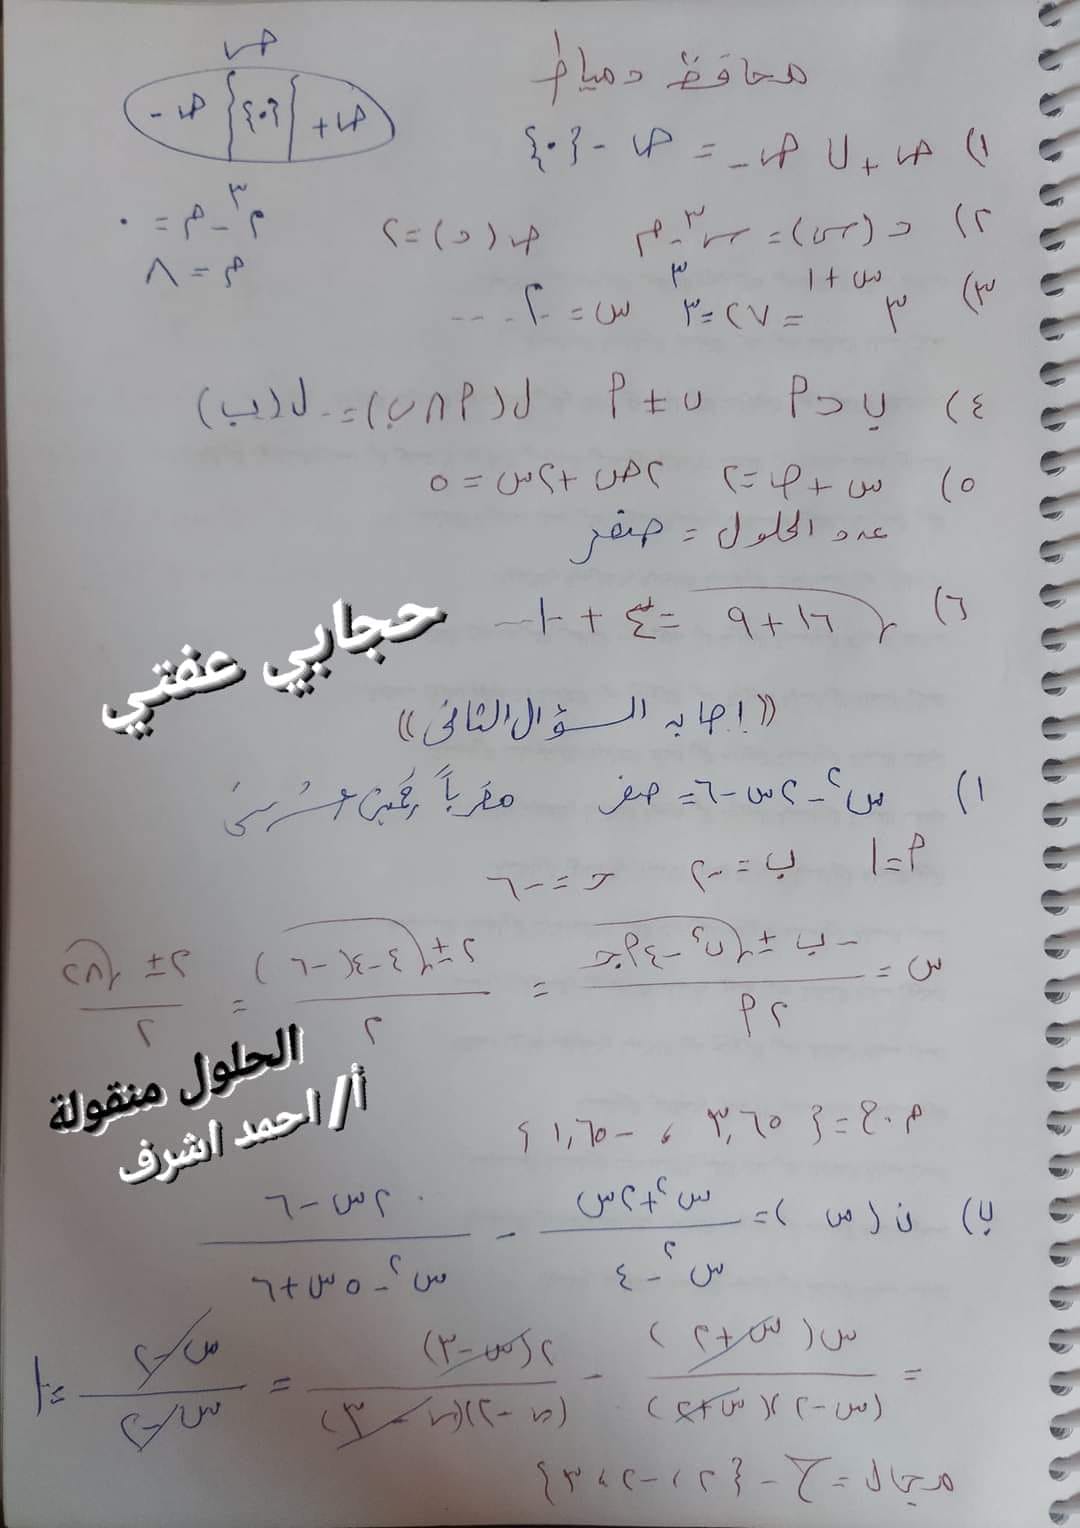 محافظة دمياط
١) ص+ ∪ ص- = ص - {٠}
ص
-ص {٠} +ص
٢) د(س) = س٣ - م ص(د) = {٢}
م - ٣٢ = ٠
م = ٨
٣) ٣ س+١ = ٢٧ = ٣٣ س = ٢ ....
٤) ب ⊃ أ ب ≠ أ ل(أ ∩ ب) = ل(ب)
٥) س + ص = ٢ ٢ص + ٢س = ٥
عدد الحلول = صفر
٦) √١٦ + ٩ = ٤ + ١ ...
حجابي عفتي
((إجابه السؤال الثانى))
١) س٢ - ٢س - ٦ = صفر مقرباً رقمين عشريين
أ = ١ ب = -٢ جـ = -٦
س = (-ب ± √(ب٢ - ٤أجـ)) / ٢أ = (٢ ± √(٤ - ٤(-٦))) / ٢ = (٢ ± √٢٨) / ٢
الحلول منقولة
أ/ احمد اشرف
م.ح = {٣,٦٥ ، -١,٦٥}
ب) ن(س) = (س٢ + ٢س) / (س٢ - ٤) - (٢س - ٦) / (س٢ - ٥س + ٦)
= س(س+٢) / (س-٢)(س+٢) - ٢(س-٣) / (س-٢)(س-٣) = (س-٢) / (س-٢) = ١
مجال = ح - {٢، -٢، ٣}